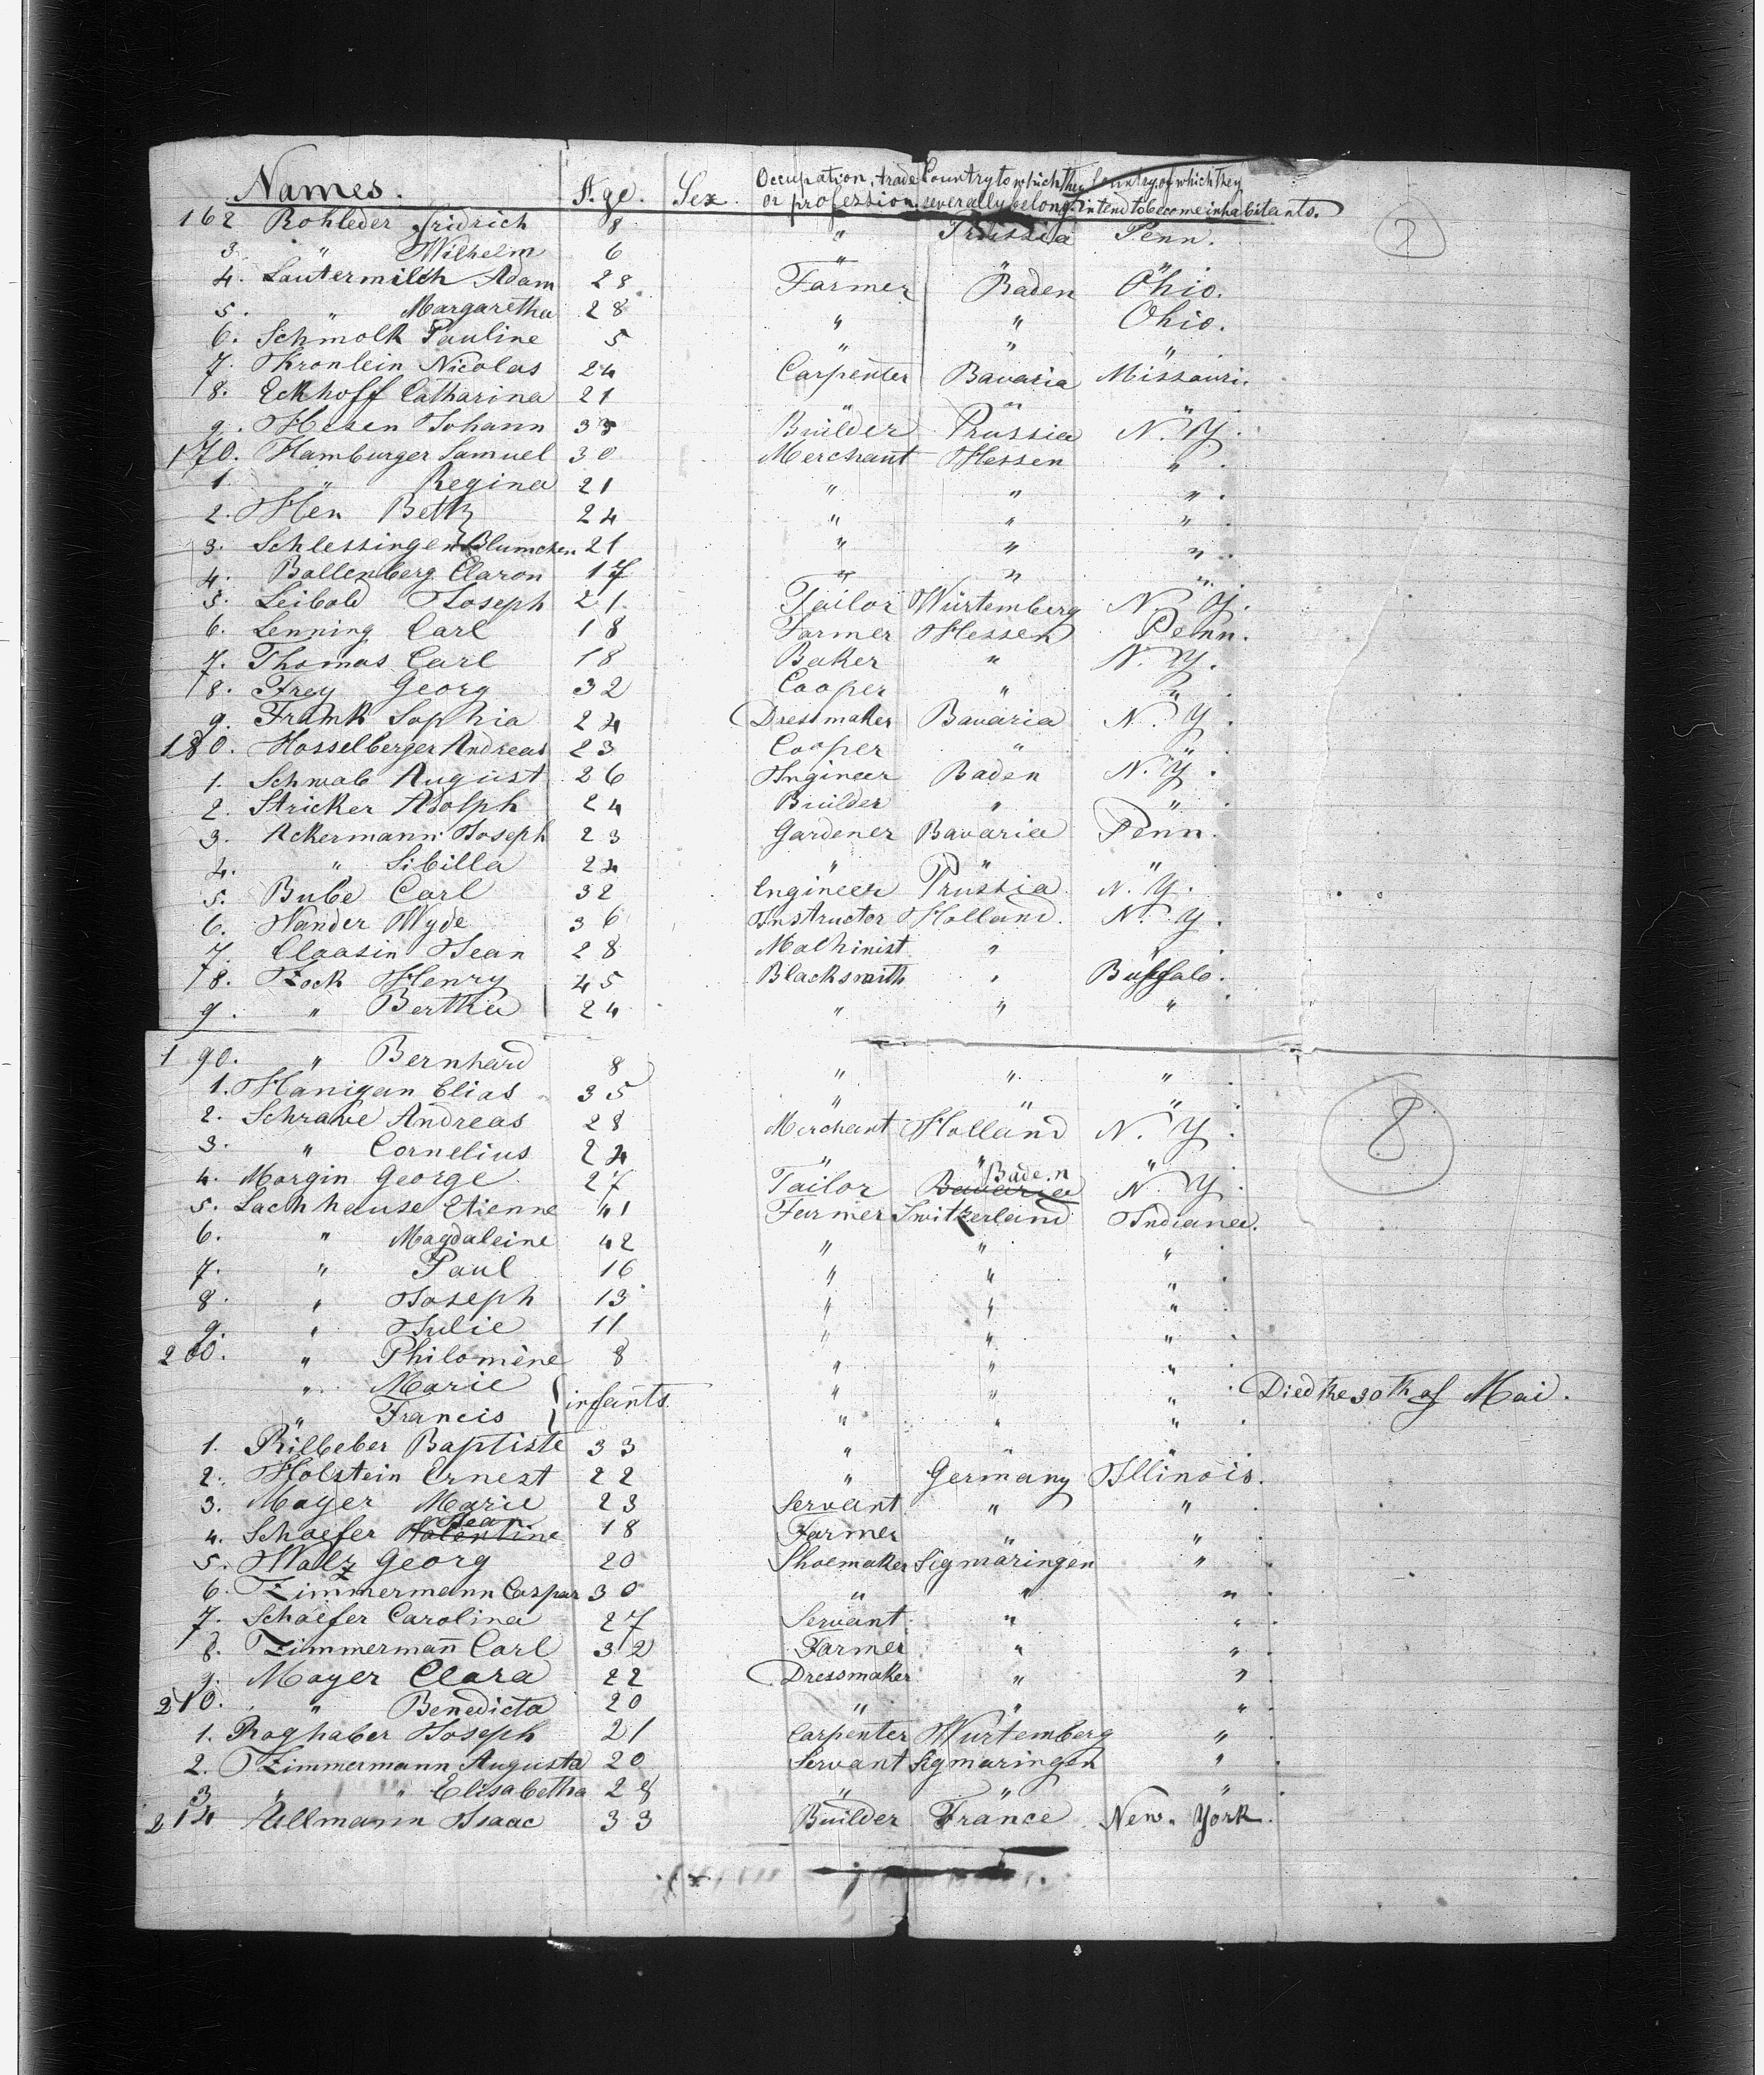 Names. Age. Sex. Occupation, trade or profession. Country to which they severally belong. Country of which they intend to become inhabitants.
162 Rohleder Fridrich 8 " Prussia Penn. 7
3. " Wilhelm 6 " " "
4. Lautermilch Adam 28 Farmer Baden Ohio.
5. " Margaretha 28 " " Ohio.
6. Schmolk Pauline 5 " " "
7. Kronlein Nicolas 24 Carpenter Bavaria Missouri.
8. Eckhoff Catharina 21 " " "
9. Hesen Johann 33 Builder Prussia N. Y.
170. Hamburger Samuel 30 Merchant Hessen " .
1. " Regina 21 " " " .
2. Hen Betty 24 " " " .
3. Schlessinger Blumchen 21 " " " .
4. Ballenberg Claron 17 " " "
5. Leibold Joseph 21. Tailor Würtemberg N. Y.
6. Lenning Carl 18 Farmer Hessen Penn.
7. Thomas Carl 18 Baker " N. Y.
8. Frey Georg 32 Cooper " " .
9. Framk Sophia 24 Dressmaker Bavaria N. Y.
180. Hosselberger Andreas 23 Cooper " "
1. Schwab August 26 Ingineer Baden N. Y.
2. Stricker Adolph 24 Builder " " .
3. Ackermann Joseph 23 Gardener Bavaria Penn.
4. " Sibilla 24 " " "
5. Bube Carl 32 Engineer Prussia N. Y.
6. Wander Wyde 36 Instructor Holland. N. Y.
7. Claasin Jean 28 Malhinist "
8. Zock Henry 45 Blacksmith " Buffalo.
9. " Bertha 24 " " "
190. " Bernhard 8 " " " .
1. Hanigan Elias 35 " " " .
2. Schrave Andreas 28 Merchant Holland N. Y. 8
3. " Cornelius 24 " " "
4. Margin George 27 Tailor Bavaria Baden N. Y.
5. Lachhause Etienne 41 Farmer Switzerland Indiana.
6. " Magdaleine 42 " " " .
7. " Paul 16 " " " .
8. " Joseph 13 " " " .
9. " Julie 11 " " " .
200. " Philomène 8 " " " .
" Marie infants " " " . Died the 30th of Mai.
" Francis " " " .
1. Rilbeber Baptiste 33 " " "
2. Holstein Ernest 22 " Germany Illinois.
3. Mayer Marie 23 Servant " " .
4. Schaefer Valentine Jean 18 Farmer " " .
5. Walz Georg 20 Shoemaker Sigmaringen " .
6. Zimmermann Caspar 30 " " " .
7. Schaefer Carolina 27 Servant " " .
8. Zimmermann Carl 32 Farmer " " .
9. Mayer Clara 22 Dressmaker " " .
210. " Benedicta 20 " " " .
1. Raghaber Joseph 21 Carpenter Wurtemberg " .
2. Zimmermann Augusta 20 Servant Sigmaringen " .
3 " " Elisabetha 28 " " "
214 Ullmann Isaac 33 Builder France New. York.